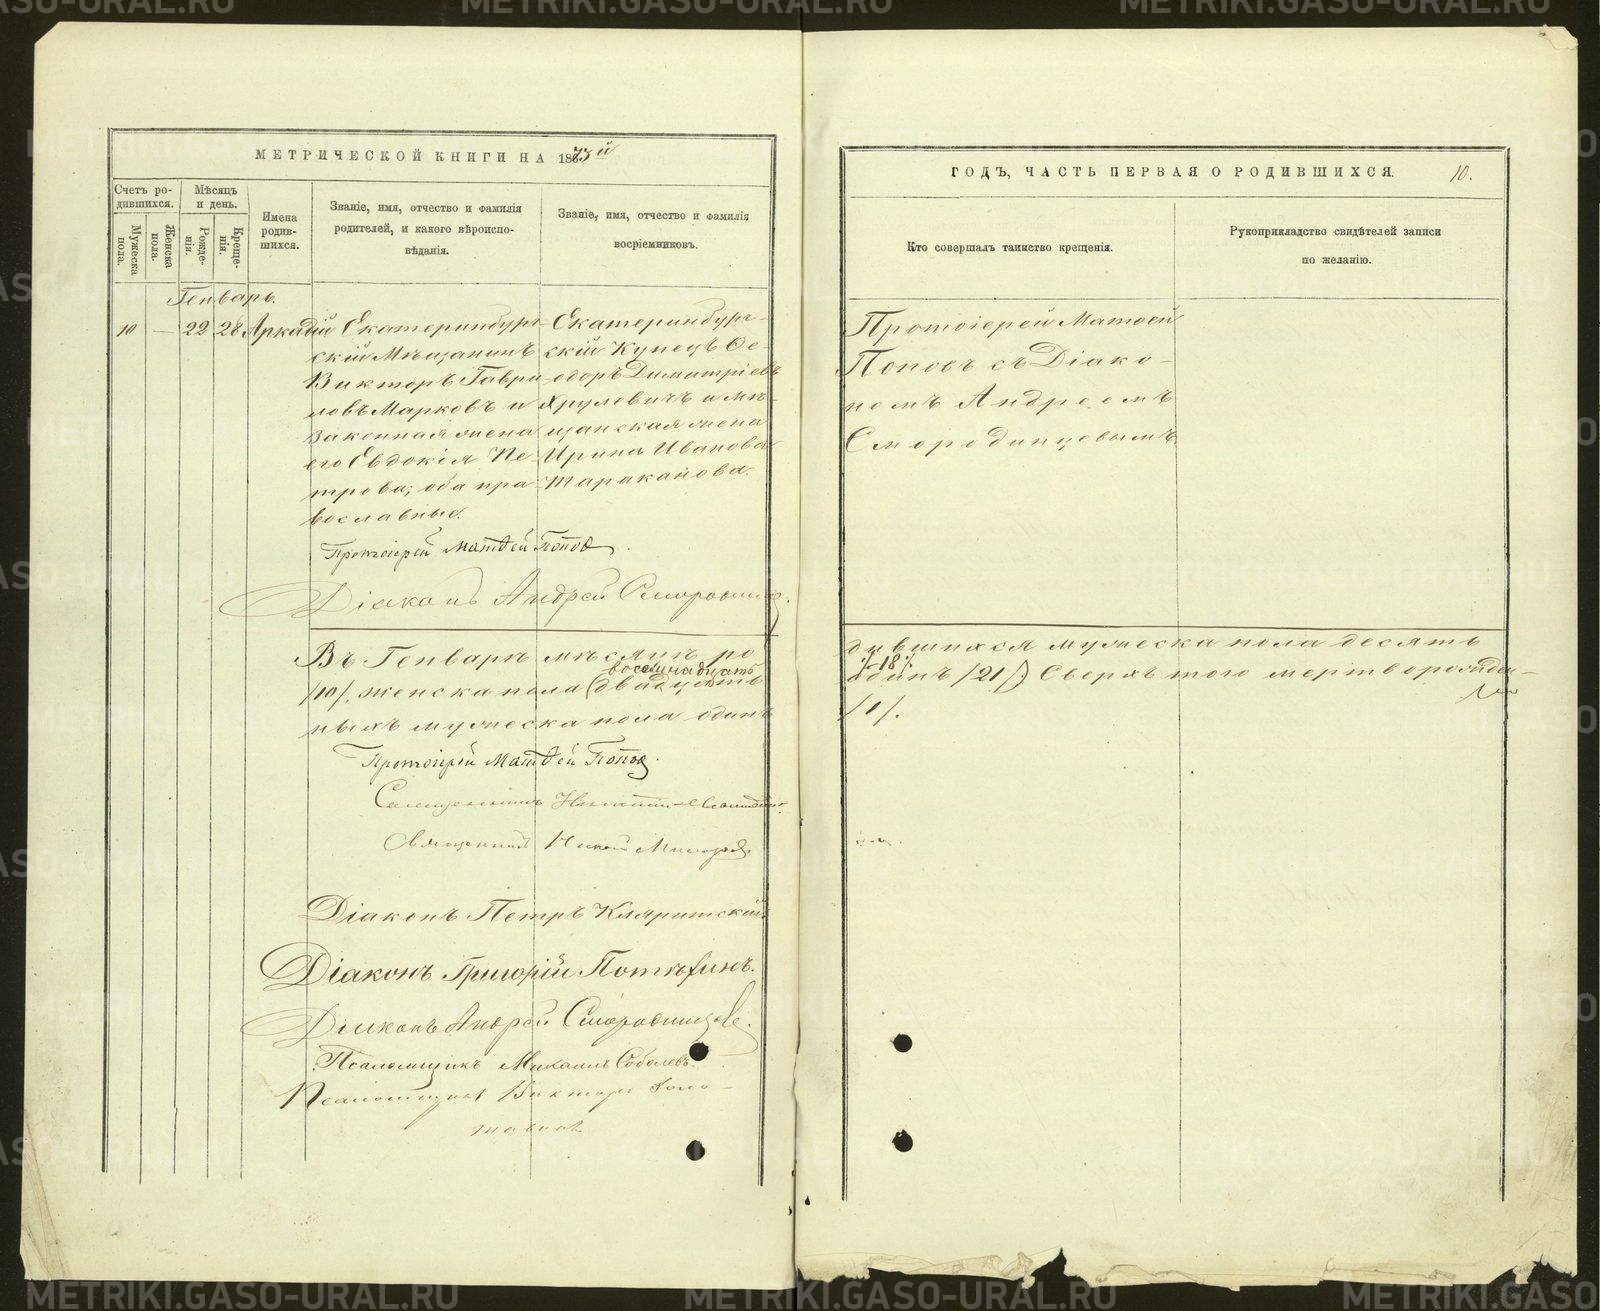 МЕТРИЧЕСКОЙ КНИГИ НА 1873й
Счетъ ро-
дившихся.
Мѣсяцъ
и день.
Мужеска
пола.
Женска
пола.
Рожде-
нія.
Креще-
нія.
Имена
родив-
шихся.
Званіе, имя, отчество и фамилія
родителей, и какого вѣроиспо-
вѣданія.
Званіе, имя, отчество и фамилія
воспріемниковъ.
Генварь.
10 — 22 28 Аркадій
Екатеринбург-
скій Мѣщанинъ
Викторъ Гаври-
ловъ Марковъ и
законная жена
его Евдокія Пе-
трова, оба пра-
вославные.
Екатеринбург-
скій Купецъ Ѳе-
одоръ Димитріевъ
Хрулевичъ и мѣ-
щанская жена
Ирина Иванова
Тараканова.
Протоіерей Матѳей Поповъ
Діаконъ Андрей Смородинцев.
Въ Генварѣ мѣсяцѣ ро
восемнадцать
/10/. женска пола (двадцать
ныхъ мужеска пола одинъ
Протоіерей Матѳей Поповъ.
Священникъ
Священникъ
Діаконъ Петръ
Діаконъ Григорій Потѣхинъ.
Діаконъ Андрей Смородинцев.
Псаломщикъ Михаилъ Соболевъ
Псаломщикъ Викторъ
ГОДЪ, ЧАСТЬ ПЕРВАЯ О РОДИВШИХСЯ.
10.
Кто совершалъ таинство крещенія.
Рукоприкладство свидѣтелей записи
по желанію.
Протоіерей Матѳей
Поповъ съ Діако-
номъ Андреемъ
Смородинцевымъ
дившихся мужеска пола десять
/18/.
одинъ /21/) Сверхъ того мертворожден-
/1/.
METRIKI.GASO-URAL.RU